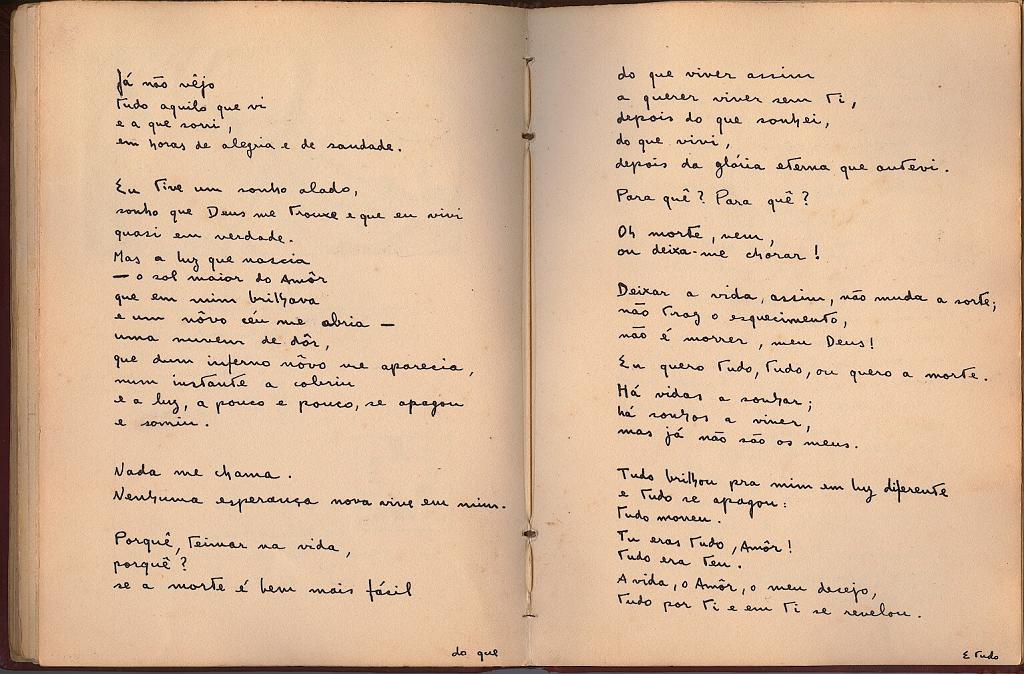 Já não vêjo
tudo aquilo que vi
e a que sorri,
em horas de alegria e de saudade.
Eu tive um sonho alado,
sonho que Deus me trouxe e que eu vivi
quasi em verdade.
Mas a luz que nascia
— o sol maior do Amôr
que em mim brilhava
e um nôvo céu me abria —
uma nuvem de dôr,
que dum inferno nôvo me aparecia,
num instante a cobriu
e a luz, a pouco e pouco, se apagou
e somiu.
Nada me chama.
Nenhuma esperança nova vive em mim.
Porquê, teimar na vida,
porquê?
se a morte é bem mais fásil
do que
do que viver assim
a querer viver sem ti,
depois do que sonhei,
do que vivi,
depois da glória eterna que antevi.
Para quê? Para quê?
Oh morte, vem,
ou deixa-me chorar!
Deixar a vida, assim, não muda a sorte;
não traz o esquecimento,
não é morrer, meu Deus!
Eu quero tudo, tudo, ou quero a morte.
Há vidas a sonhar;
há sonhos a viver,
mas já não são os meus.
Tudo brilhou pra mim em luz diferente
e tudo se apagou:
tudo morreu.
Tu eras tudo, Amôr!
tudo era teu.
A vida, o Amôr, o meu desejo,
tudo por ti e em ti se revelou.
E tudo